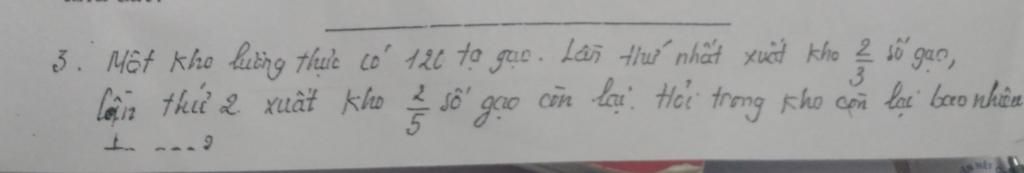 3. Một kho lương thực có 120 tạ gạo. Lần thứ nhất xuất kho 2/3 số gạo,
lần thứ 2 xuất kho 2/5 số gạo còn lại. Hỏi trong kho còn lại bao nhiêu